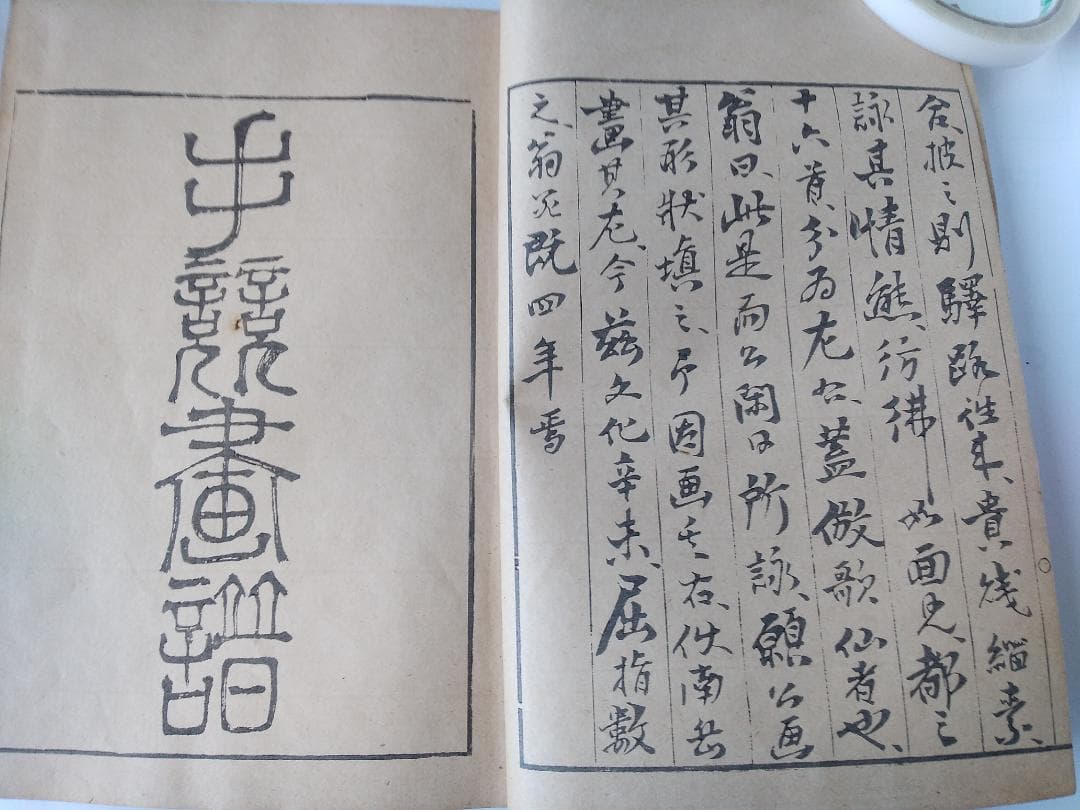 披之則驛路往来、貴賤緇素、
詠其情態、彷彿如面見、都三
十六首、分為左右、蓋倣歌仙者也、
翁曰、此是而公閑日所詠、願公画
其形狀填之、予因画其右、使南岳
畫其左、今茲文化辛未、屈指數
之、翁死既四年焉
手競畫譜